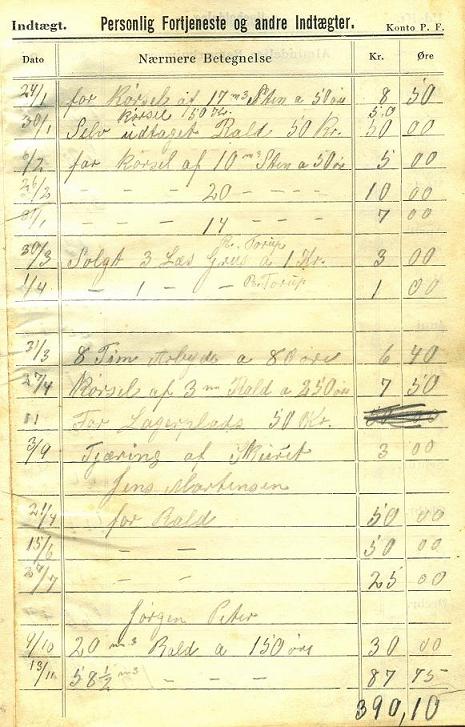 Indtægt. Personlig Fortjeneste og andre Indtægter. Konto P. F.
Dato Nærmere Betegnelse Kr. Øre
24/1 for Kørsel af 17 m3 Sten a 50 øre 8 50
Kørsel 150 Kr. 50
30/1 Selv udtaget Rald 50 Kr. 50 00
6/2 for Kørsel af 10 m3 Sten a 50 øre 5 00
26/2 - - 20 - - - - 10 00
- - 14 - - - - 7 00
R. Torup
30/3 Solgt 3 Læs Grus a 1 Kr. 3 00
1/4 - 1 - - R. Torup 1 00
31/3 8 Tim Arbyde a 80 øre 6 40
27/4 Kørsel af 3 m Rald a 250 øre 7 50
11 For Lagerplads 50 Kr.
3/9 Tjæring af 3 00
Jens Mortensen
21/4 for Rald 50 00
15/6 - - 50 00
27/7 - - 25 00
Jørgen Peter
4/10 20 m3 Rald a 150 øre 30 00
13/11 58 1/2 m3 - - - 87 75
390,10